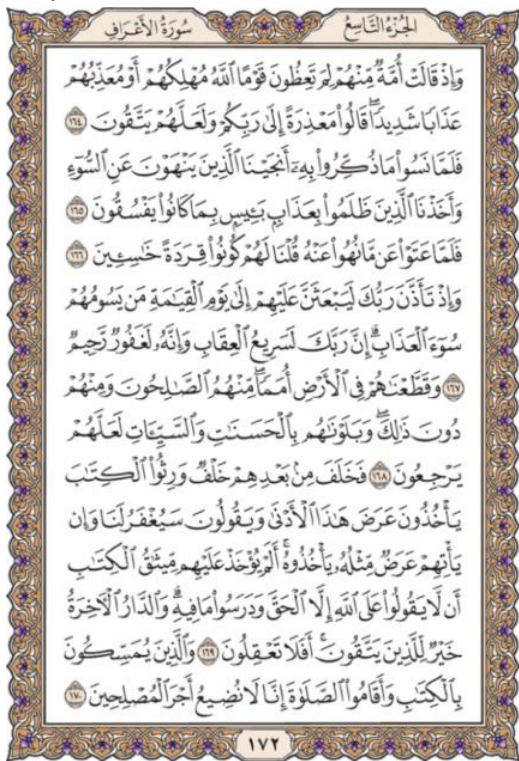 سُورَةُ الأَعْرَافِ
الجُزْءُ التَّاسِعُ
وَإِذْ قَالَتْ أُمَّةٌ مِّنْهُمْ لِمَ تَعِظُونَ قَوْمًا ٱللَّهُ مُهْلِكُهُمْ أَوْ مُعَذِّبُهُمْ
عَذَابًا شَدِيدًا ۖ قَالُوا۟ مَعْذِرَةً إِلَىٰ رَبِّكُمْ وَلَعَلَّهُمْ يَتَّقُونَ ١٦٤
فَلَمَّا نَسُوا۟ مَا ذُكِّرُوا۟ بِهِۦٓ أَنجَيْنَا ٱلَّذِينَ يَنْهَوْنَ عَنِ ٱلسُّوٓءِ
وَأَخَذْنَا ٱلَّذِينَ ظَلَمُوا۟ بِعَذَابٍۭ بَـِٔيسٍۭ بِمَا كَانُوا۟ يَفْسُقُونَ ١٦٥
فَلَمَّا عَتَوْا۟ عَن مَّا نُهُوا۟ عَنْهُ قُلْنَا لَهُمْ كُونُوا۟ قِرَدَةً خَـٰسِـِٔينَ ١٦٦
وَإِذْ تَأَذَّنَ رَبُّكَ لَيَبْعَثَنَّ عَلَيْهِمْ إِلَىٰ يَوْمِ ٱلْقِيَـٰمَةِ مَن يَسُومُهُمْ
سُوٓءَ ٱلْعَذَابِ ۗ إِنَّ رَبَّكَ لَسَرِيعُ ٱلْعِقَابِ ۖ وَإِنَّهُۥ لَغَفُورٌ رَّحِيمٌ
١٦٧ وَقَطَّعْنَـٰهُمْ فِى ٱلْأَرْضِ أُمَمًا ۖ مِّنْهُمُ ٱلصَّـٰلِحُونَ وَمِنْهُمْ
دُونَ ذَٰلِكَ ۖ وَبَلَوْنَـٰهُم بِٱلْحَسَنَـٰتِ وَٱلسَّيِّـَٔاتِ لَعَلَّهُمْ
يَرْجِعُونَ ١٦٨ فَخَلَفَ مِنۢ بَعْدِهِمْ خَلْفٌ وَرِثُوا۟ ٱلْكِتَـٰبَ
يَأْخُذُونَ عَرَضَ هَـٰذَا ٱلْأَدْنَىٰ وَيَقُولُونَ سَيُغْفَرُ لَنَا وَإِن
يَأْتِهِمْ عَرَضٌ مِّثْلُهُۥ يَأْخُذُوهُ ۚ أَلَمْ يُؤْخَذْ عَلَيْهِم مِّيثَـٰقُ ٱلْكِتَـٰبِ
أَن لَّا يَقُولُوا۟ عَلَى ٱللَّهِ إِلَّا ٱلْحَقَّ وَدَرَسُوا۟ مَا فِيهِ ۗ وَٱلدَّارُ ٱلْـَٔاخِرَةُ
خَيْرٌ لِّلَّذِينَ يَتَّقُونَ ۗ أَفَلَا تَعْقِلُونَ ١٦٩ وَٱلَّذِينَ يُمَسِّكُونَ
بِٱلْكِتَـٰبِ وَأَقَامُوا۟ ٱلصَّلَوٰةَ إِنَّا لَا نُضِيعُ أَجْرَ ٱلْمُصْلِحِينَ ١٧٠
١٧٢